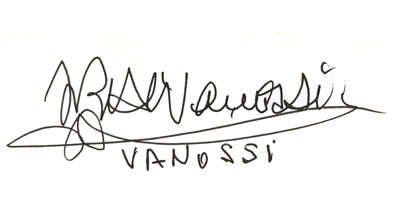 Vanossi
VANOSSI